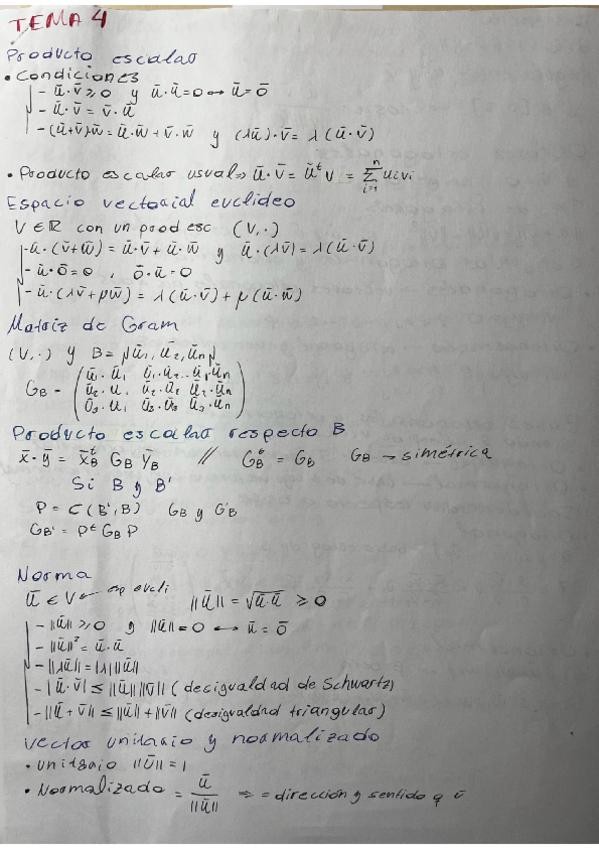 TEMA 4
Producto escalar
• Condiciones
- ū·v̄ ≥ 0 y ū·ū = 0 ↔ ū = ō
- ū·v̄ = v̄·ū
- (ū+v̄)w̄ = ū·w̄ + v̄·w̄ y (λū)·v̄ = λ(ū·v̄)
• Producto escalar usual ⇒ ū·v̄ = ūᵗ v = Σⁿᵢ₌₁ uᵢvᵢ
Espacio vectorial euclideo
V ∈ ℝ con un prod esc (V,·)
- ū·(v̄+w̄) = ū·v̄ + ū·w̄ y ū·(λv̄) = λ(ū·v̄)
- ū·ō = 0 , ō·ū = 0
- ū·(λv̄+μw̄) = λ(ū·v̄) + μ(ū·w̄)
Matriz de Gram
(V,·) y B = {ū₁, ū₂, ūn}
ū₁·ū₁ ū₁·ū₂ .. ū₁·ūn
G_B = ū₂·u₁ ū₂·ū₂ ū₂·ūn
ū₃·u₁ ū₃·ū₃ ū₃·ūn
Producto escalar respecto B
x̄·ȳ = x̄ᵗ_B G_B ȳ_B // Gᵗ_B = G_B G_B → simétrica
Si B y B'
P = C(B',B) G_B y G'_B
G_B' = Pᵗ G_B P
Norma
ū ∈ V ← esp eucli ||ū|| = √ū·ū ≥ 0
- ||ū|| ≥ 0 y ||ū|| = 0 ↔ ū = ō
- ||ū||² = ū·ū
- ||λū|| = |λ| ||ū||
- |ū·v̄| ≤ ||ū|| ||v̄|| (desigualdad de Schwartz)
- ||ū+v̄|| ≤ ||ū|| + ||v̄|| (desigualdad triangular)
Vector unitario y normalizado
• unitario ||ū|| = 1
• Normalizado = ū / ||ū|| ⇒ = dirección y sentido q ū